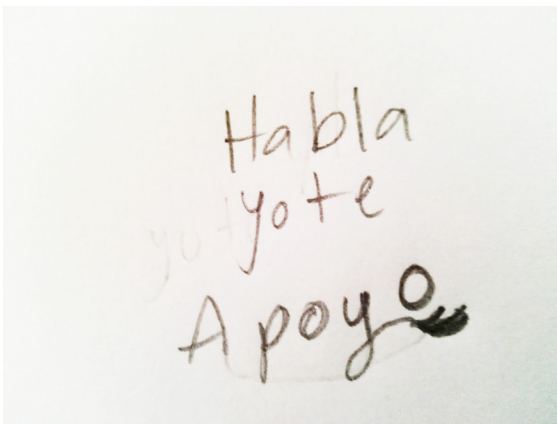 Habla
yo te
Apoyo